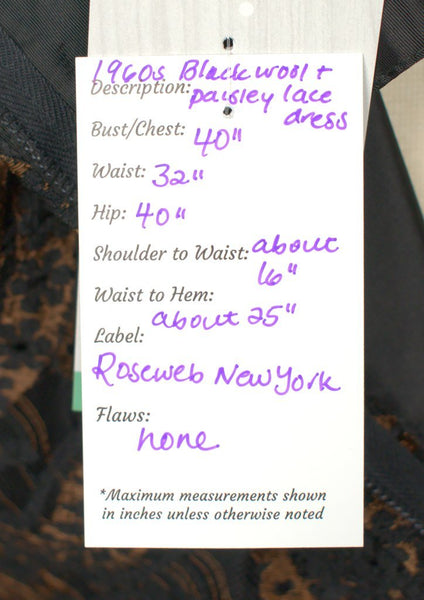 1960s Black wool +
Description: paisley lace
dress
Bust/Chest: 40"
Waist: 32"
Hip: 40"
Shoulder to Waist: about
16"
Waist to Hem:
about 25"
Label:
Roseweb New York
Flaws:
none
*Maximum measurements shown
in inches unless otherwise noted